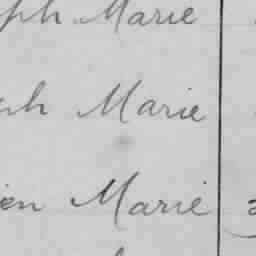 ph Marie
ph Marie
ien Marie